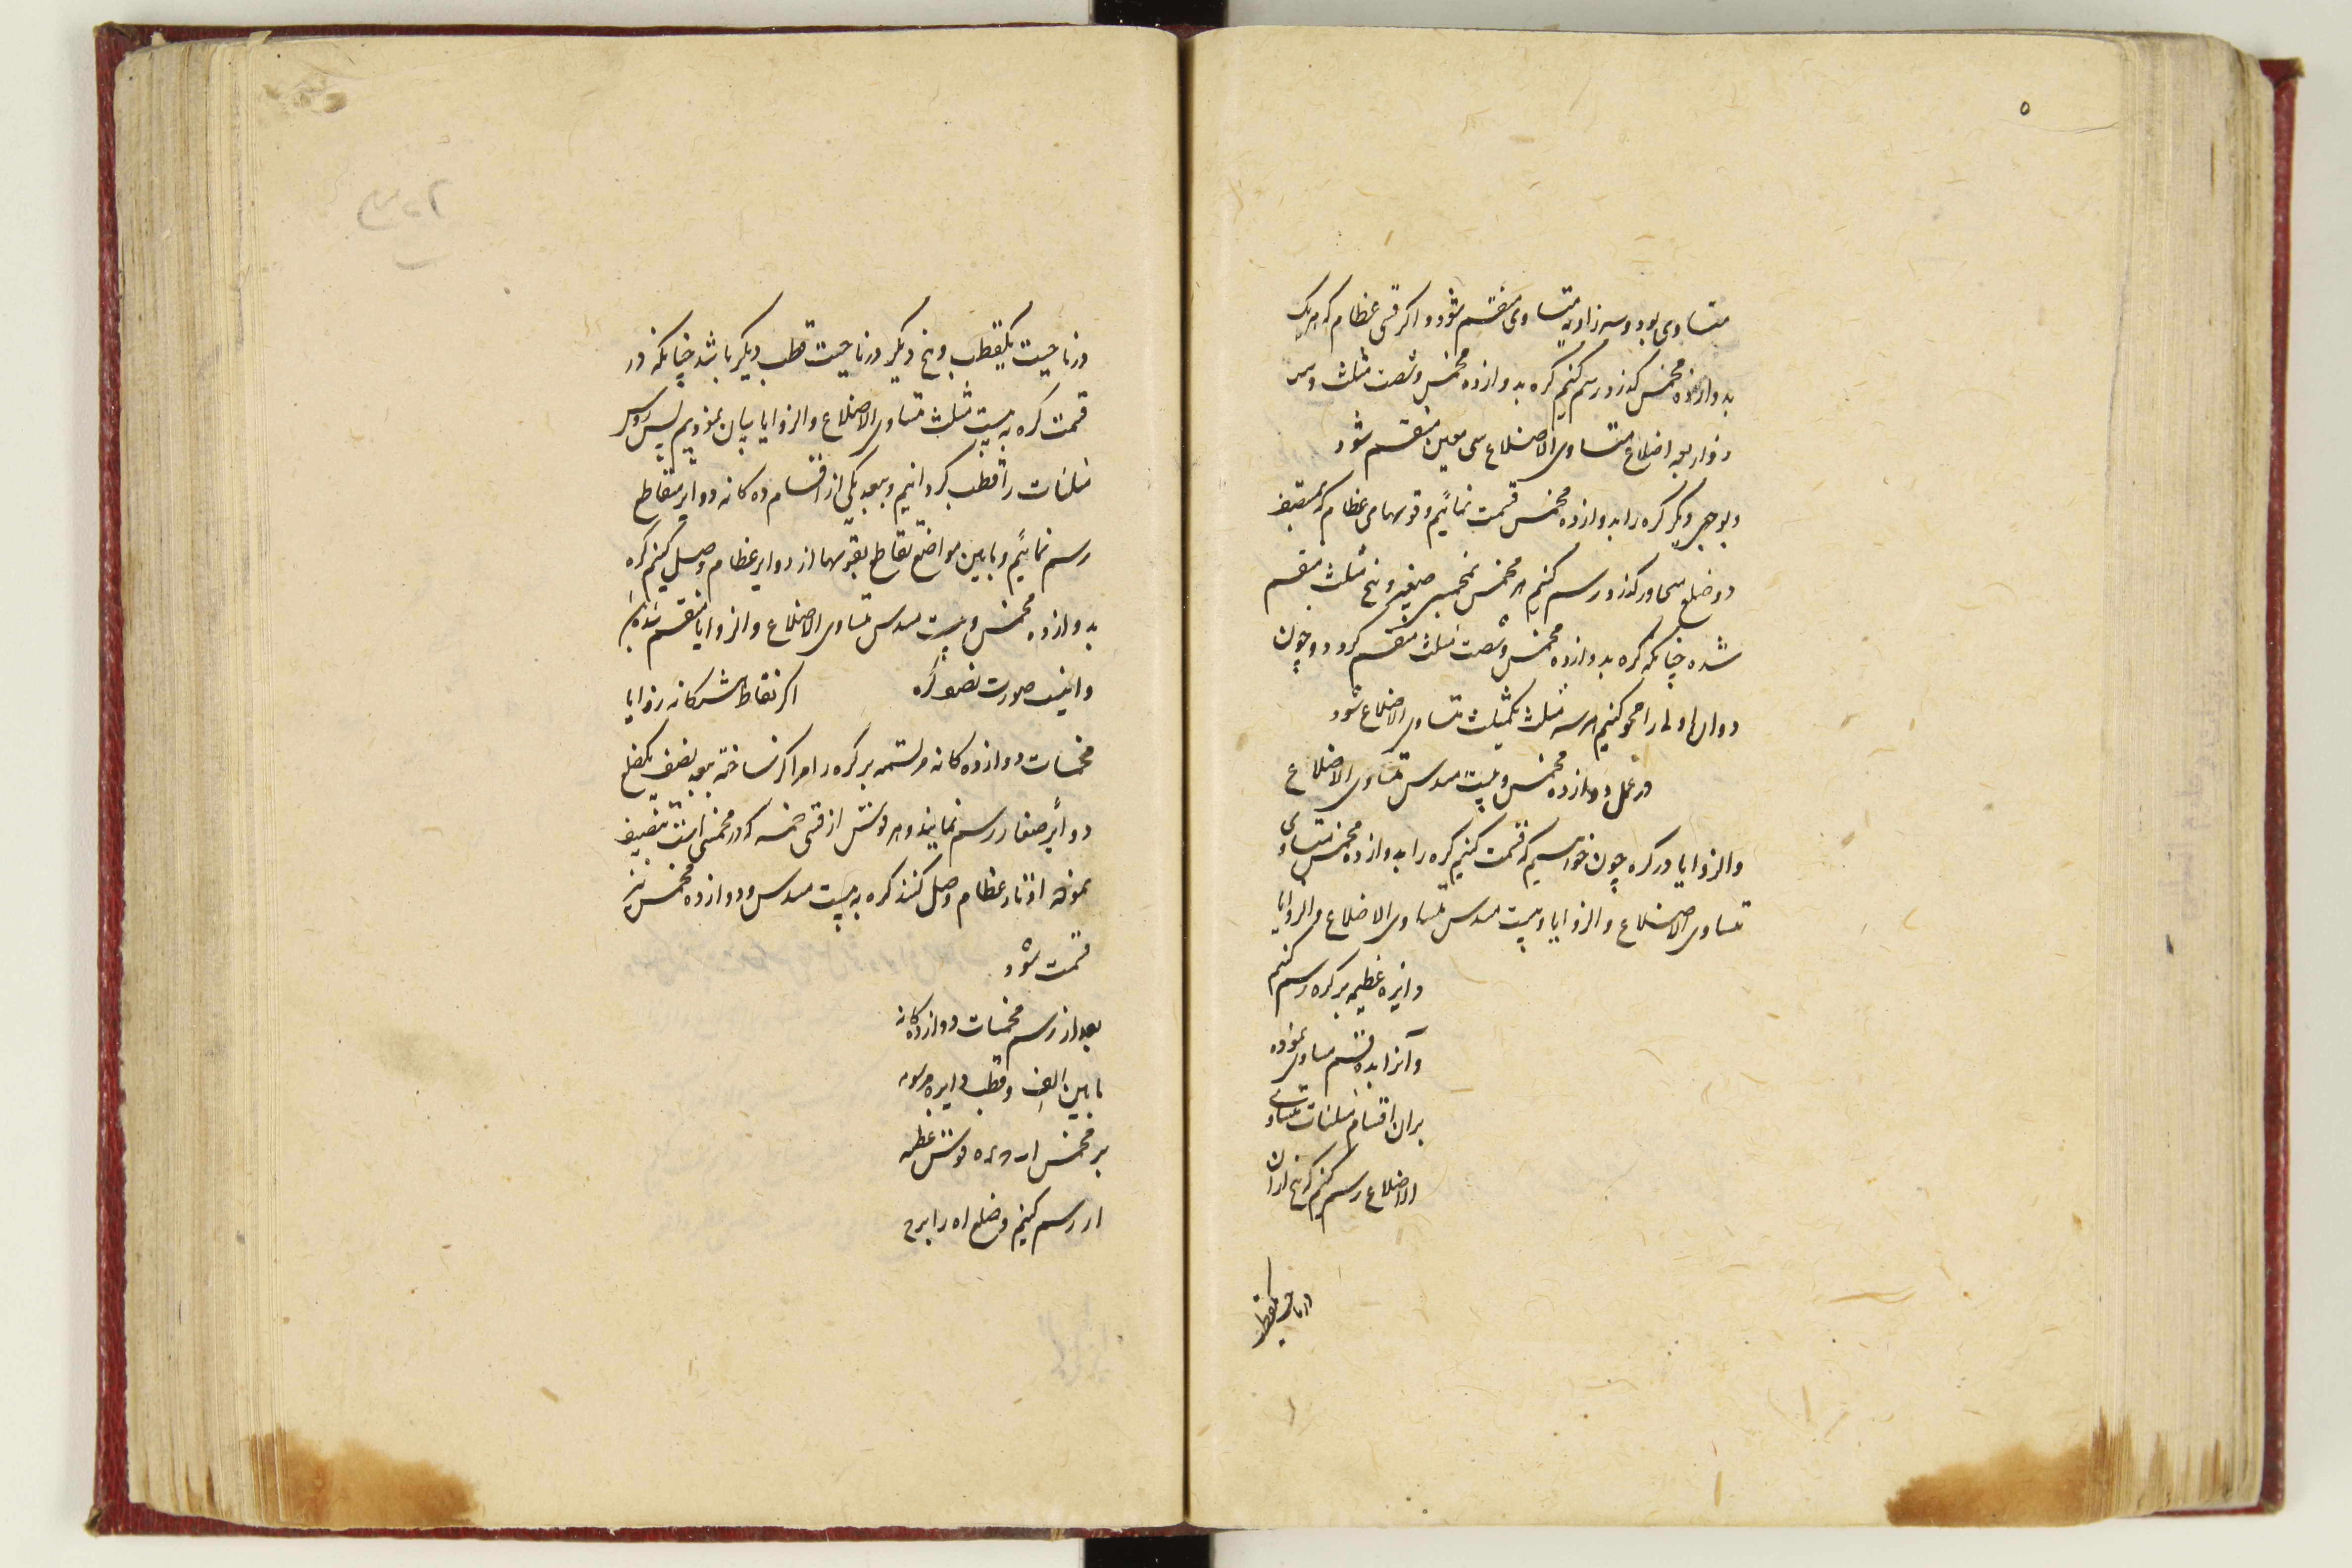 ۵
متساوی بود و سه زاویه متساوی منقسم شود و اگر قسی عظام که هر یک
بدوازده مخمس کذرد رسم کنیم کره بدوازده مخمس و شصت مثلث و سی
ذو اربعه اضلاع متساوی الاضلاع سی معین منقسم شود
و بوجهی دیگر کره را بدوازده مخمس قسمت نمائیم و قوسهای عظام که بمنتصف
دو ضلع متجاور کذرد رسم کنیم هر مخمس بمخمسی صغیر و پنج مثلث منقسم
شده چنانکه کره بدوازده مخمس و شصت مثلث منقسم کردد و چون
دوایر اولی را محو کنیم هر سه مثلث یک مثلث متساوی الاضلاع شود
در عمل دوازده مخمس و بیست مسدس متساوی الاضلاع
والزوایا در کره چون خواستیم که قسمت کنیم کره را بدوازده مخمس متساوی
متساوی الاضلاع والزوایا و بیست مسدس متساوی الاضلاع والزوایا
دایره عظیمه بر کره رسم کنیم
و آنرا بده قسم مساوی نموده
بران اقسام مثلثات متساوی
الاضلاع رسم کنیم که پنج ازان
در ناحیت یکقطب
در ناحیت یکقطب و پنج دیگر در ناحیت قطب دیگر باشد چنانکه در
قسمت کره به بیست مثلث متساوی الاضلاع والزوایا بیان نمودیم پس رؤس
مثلثات را قطب کردانیم و ببعد یکی از اقسام ده کانه دوایر متقاطع
رسم نمائیم و مابین مواضع تقاطع بقوسها از دوایر عظام وصل کنیم کره
بدوازده مخمس و بیست مسدس متساوی الاضلاع والزوایا منقسم شده باشد
و اینست صورت نصف کره اکر نقاط شرکانه زوایا
مخمسات دوازده کانه مرتسمه بر کره را مراکز ساخته ببعد نصف یکضلع
دوایر صغار رسم نمایند و هر قوس از قسی خمسه که در مخمس است تنصیف
نموده اوتار عظام وصل کنند کره به بیست مسدس و دوازده مخمس نیز
قسمت شود
بعد از رسم مخمسات دوازده کانه
مابین الف و قطب دایره مرسومه
بر مخمس قوس عظیمه
ار رسم کنیم و ضلع اه را بر ح